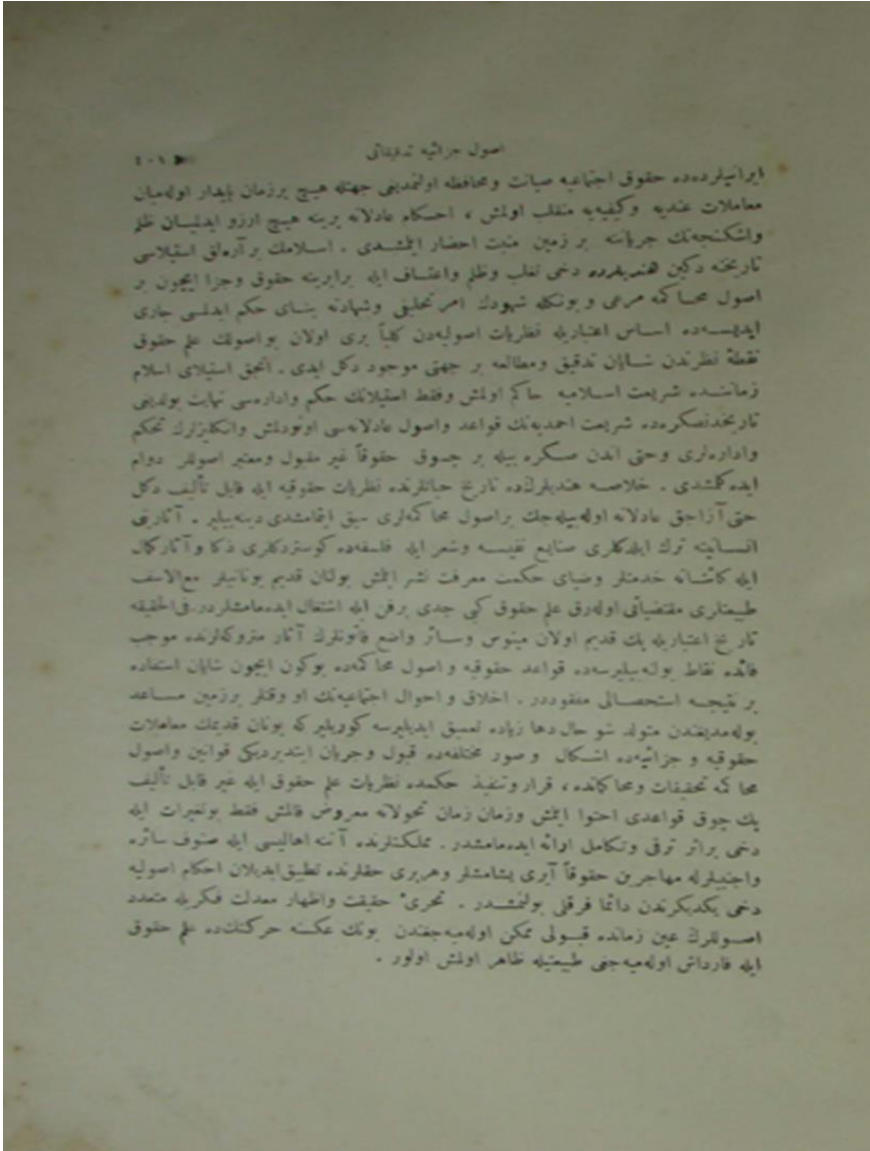 اصول جزائیه تدقیقاتی
٤٠١
ایرانیلرده‌ده حقوق اجتماعیه صیانت ومحافظه اولنمدیغی جهتله هیچ برزمان پایدار اوله‌میان
معاملات عندیه وکیفیه‌یه منقلب اولمش ، احکام عادلانه یرینه هیچ ارزو ایدلمیان ظلم
واشکنجه‌نك جریاننه بر زمین مثبت احضار ایتمشدی . اسلامك بر آره‌لق استیلاسی
تاریخنه دکین هندیلرده دخی تغلب وظلم واعتساف ایله برابرینه حقوق وجزا ایچون بر
اصول محاکمه مرعی و بونکله شهودك امر تحلیفی وشهادته بنای حکم ایدلمسی جاری
ایدیسه‌ده اساس اعتباریله نظریات اصولیه‌دن کلیاً بری اولان بو اصولك علم حقوق
نقطهٔ نظرندن شایان تدقیق ومطالعه بر جهتی موجود دکل ایدی . انجق استیلای اسلام
زماننده شریعت اسلامیه حاکم اولمش وفقط استیلانك حکم واداره‌سی نهایت بولدیغی
تاریخدنصکره‌ده شریعت احمدیه‌نك قواعد واصول عادلانه‌سی اونودلمش وانکلیزلرك تحکم
واداره‌لری وحتی اندن صکره بیله بر چوق حقوقاً غیر مقبول ومعتبر اصوللر دوام
ایده‌کلمشدی . خلاصه هندیلرك‌ده تاریخ حیاتلرنده نظریات حقوقیه ایله قابل تألیف دکل
حتی آزاجق عادلانه اوله‌بیله‌جك براصول محاکمه‌لری سبق ایتمامشدی دینه‌بیلیر . آثارنی
انسانیته ترك ایلدکلری صنایع نفیسه وشعر ایله فلسفه‌ده کوستردکلری ذکا وآثار کمال
ایله کاشانه خدمتلر وضیای حکمت معرفت نشر ایتمش بولنان قدیم یونانیلر مع‌الاسف
طبیعتلری مقتضیاتی اوله‌رق علم حقوق کبی جدی برفن ایله اشتغال ایده‌مامشلردر. فی‌الحقیقه
تاریخ اعتباریله پك قدیم اولان مینوس وسائر واضع قانونلرك آثار متروکه‌لرنده موجب
فائده نقاط بولنه‌بیلیرسه‌ده قواعد حقوقیه واصول محاکمه‌ده بوکون ایچون شایان استفاده
بر نتیجه استحصالی مفقوددر . اخلاق و احوال اجتماعیه‌نك او وقتلر برزمین مساعد
بوله‌مدیغندن متولد شو حال دها زیاده تعمیق ایدیلیرسه کوریلیر که یونان قدیمك معاملات
حقوقیه و جزائیه‌ده اشکال و صور مختلفه‌ده قبول وجریان ایتدیردیکی قوانین واصول
محاکمه تحقیقات ومحاکماتده ، قرار وتنفیذ حکمده نظریات علم حقوق ایله غیر قابل تألیف
پك چوق قواعدی احتوا ایتمش وزمان زمان تحولاته معروض قالمش فقط بوتغیرات ایله
دخی براثر ترقی وتکامل ارائه ایده‌مامشدر . مملکتلرنده آتنه اهالیسی ایله صنوف سائره
واجنبیلرله مهاجرین حقوقاً آیری یشامشلر وهربری حقلرنده تطبیق ایدیلان احکام اصولیه
دخی یکدیکرندن دائما فرقلی بولنمشدر . تحرئ حقیقت واظهار معدلت فکریله متعدد
اصوللرك عین زمانده قبولی ممکن اوله‌میه‌جغندن بونك عکسنه حرکتك‌ده علم حقوق
ایله قارداش اوله‌میه‌جغی طبیعتیله ظاهر اولمش اولور .